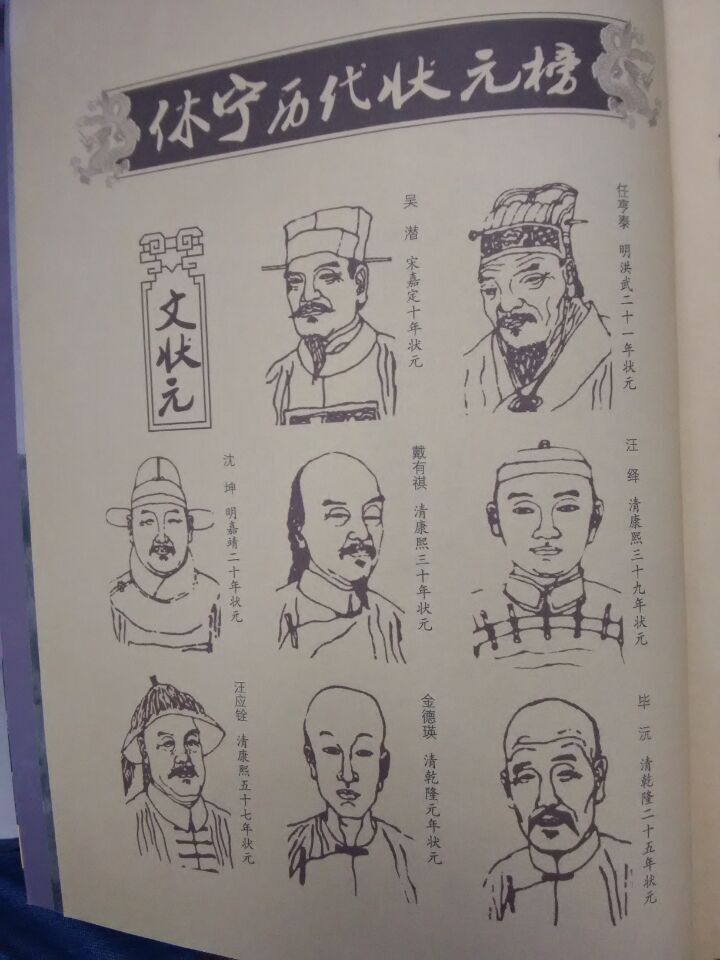 休宁历代状元榜
文状元
吴潜 宋嘉定十年状元
任亨泰 明洪武二十一年状元
沈坤 明嘉靖二十年状元
戴有祺 清康熙三十年状元
汪绎 清康熙三十九年状元
汪应铨 清康熙五十七年状元
金德瑛 清乾隆元年状元
毕沅 清乾隆二十五年状元